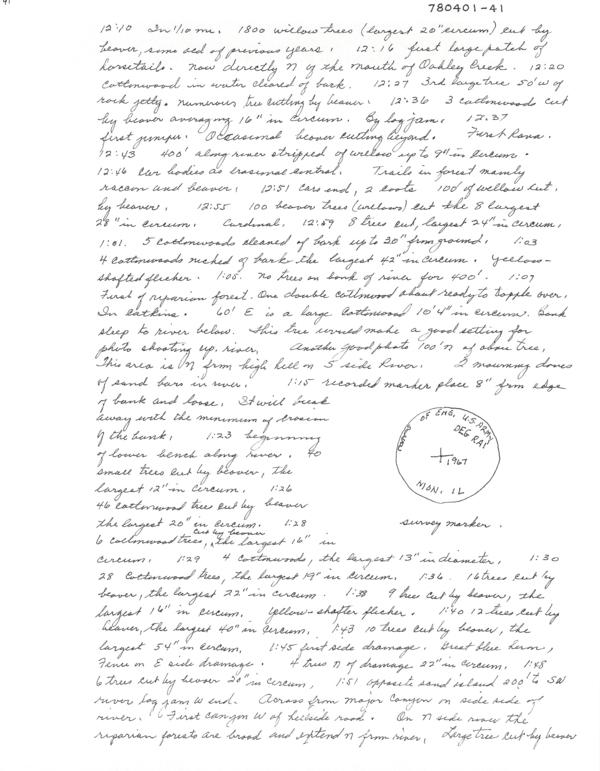 780401-41
12:10 In 1/10 mi. 1800 willow trees (largest 20" circum) cut by
beaver, some old of previous years. 12:16 first large patch of
horsetails. Now directly N of the mouth of Oakley Creek. 12:20
Cottonwood in water cleared of bark. 12:27 3rd large tree 50' W of
rock jetty. Numerous tree cutting by beaver. 12:36 3 cottonwoods cut
by beaver averaging 16" in circum. By log jam. 12:37
first juniper. Occasional beaver cutting beyond. First Rana.
12:43 400' along river stripped of willow up to 9" in circum.
12:46 Car bodies as erosional control. Trails in forest mainly
racoon and beaver. 12:51 Cars end, 2 coots 100' of willow cut.
by beaver. 12:55 100 beaver trees (willows) cut the 8 largest
28" in circum. Cardinal. 12:59 8 trees cut, largest 24" in circum.
1:01. 5 cottonwoods cleaned of bark up to 30" from ground. 1:03
4 cottonwoods niched of bark the largest 42" in circum. yellow-
shafted flicker. 1:05. No trees on bank of river for 400'. 1:07
First of riparian forest. One double cottonwood about ready to topple over.
In catkins. 60' E is a large Cottonwood 10'4" in circum. Bank
steep to river below. This tree would make a good setting for
photo shooting up river. Another good photo 100' N of above tree.
This area is N from high hill on S side River. 2 mourning doves
of sand bars in river. 1:15 recorded marker place 8" from edge
of bank and loose. It will break
away with the minimum of erosion
of the bank. 1:23 beginning
of lower bench along river. 40
small trees cut by beaver, the
largest 12" in circum. 1:26
46 cottonwood trees cut by beaver
the largest 20" in circum. 1:28
6 cottonwood trees, cut by beaver the largest 16" in
OF ENG. U.S. ARMY
1967
MON. 1L
survey marker.
circum. 1:29 4 cottonwoods, the largest 13" in diameter. 1:30
28 Cottonwood trees, the largest 19" in circum. 1:36. 16 trees cut by
beaver, the largest 22" in circum. 1:38 9 trees cut by beaver, the
largest 16" in circum. Yellow-shafter flicker. 1:40 12 trees cut by
beaver, the largest 40" in circum. 1:43 10 trees cut by beaver, the
largest 54" in circum. 1:45 first side drainage. Great blue heron,
Fence on E side drainage. 4 trees N of drainage 22" in circum. 1:48
6 trees cut by beaver 20" in circum. 1:51 opposite sand island 200' to SW
river log jam W end. Across from major Canyon on side side of
river. First canyon W of hillside road. On N side river the
riparian forests are broad and extend N from river. Large tree cut by beaver